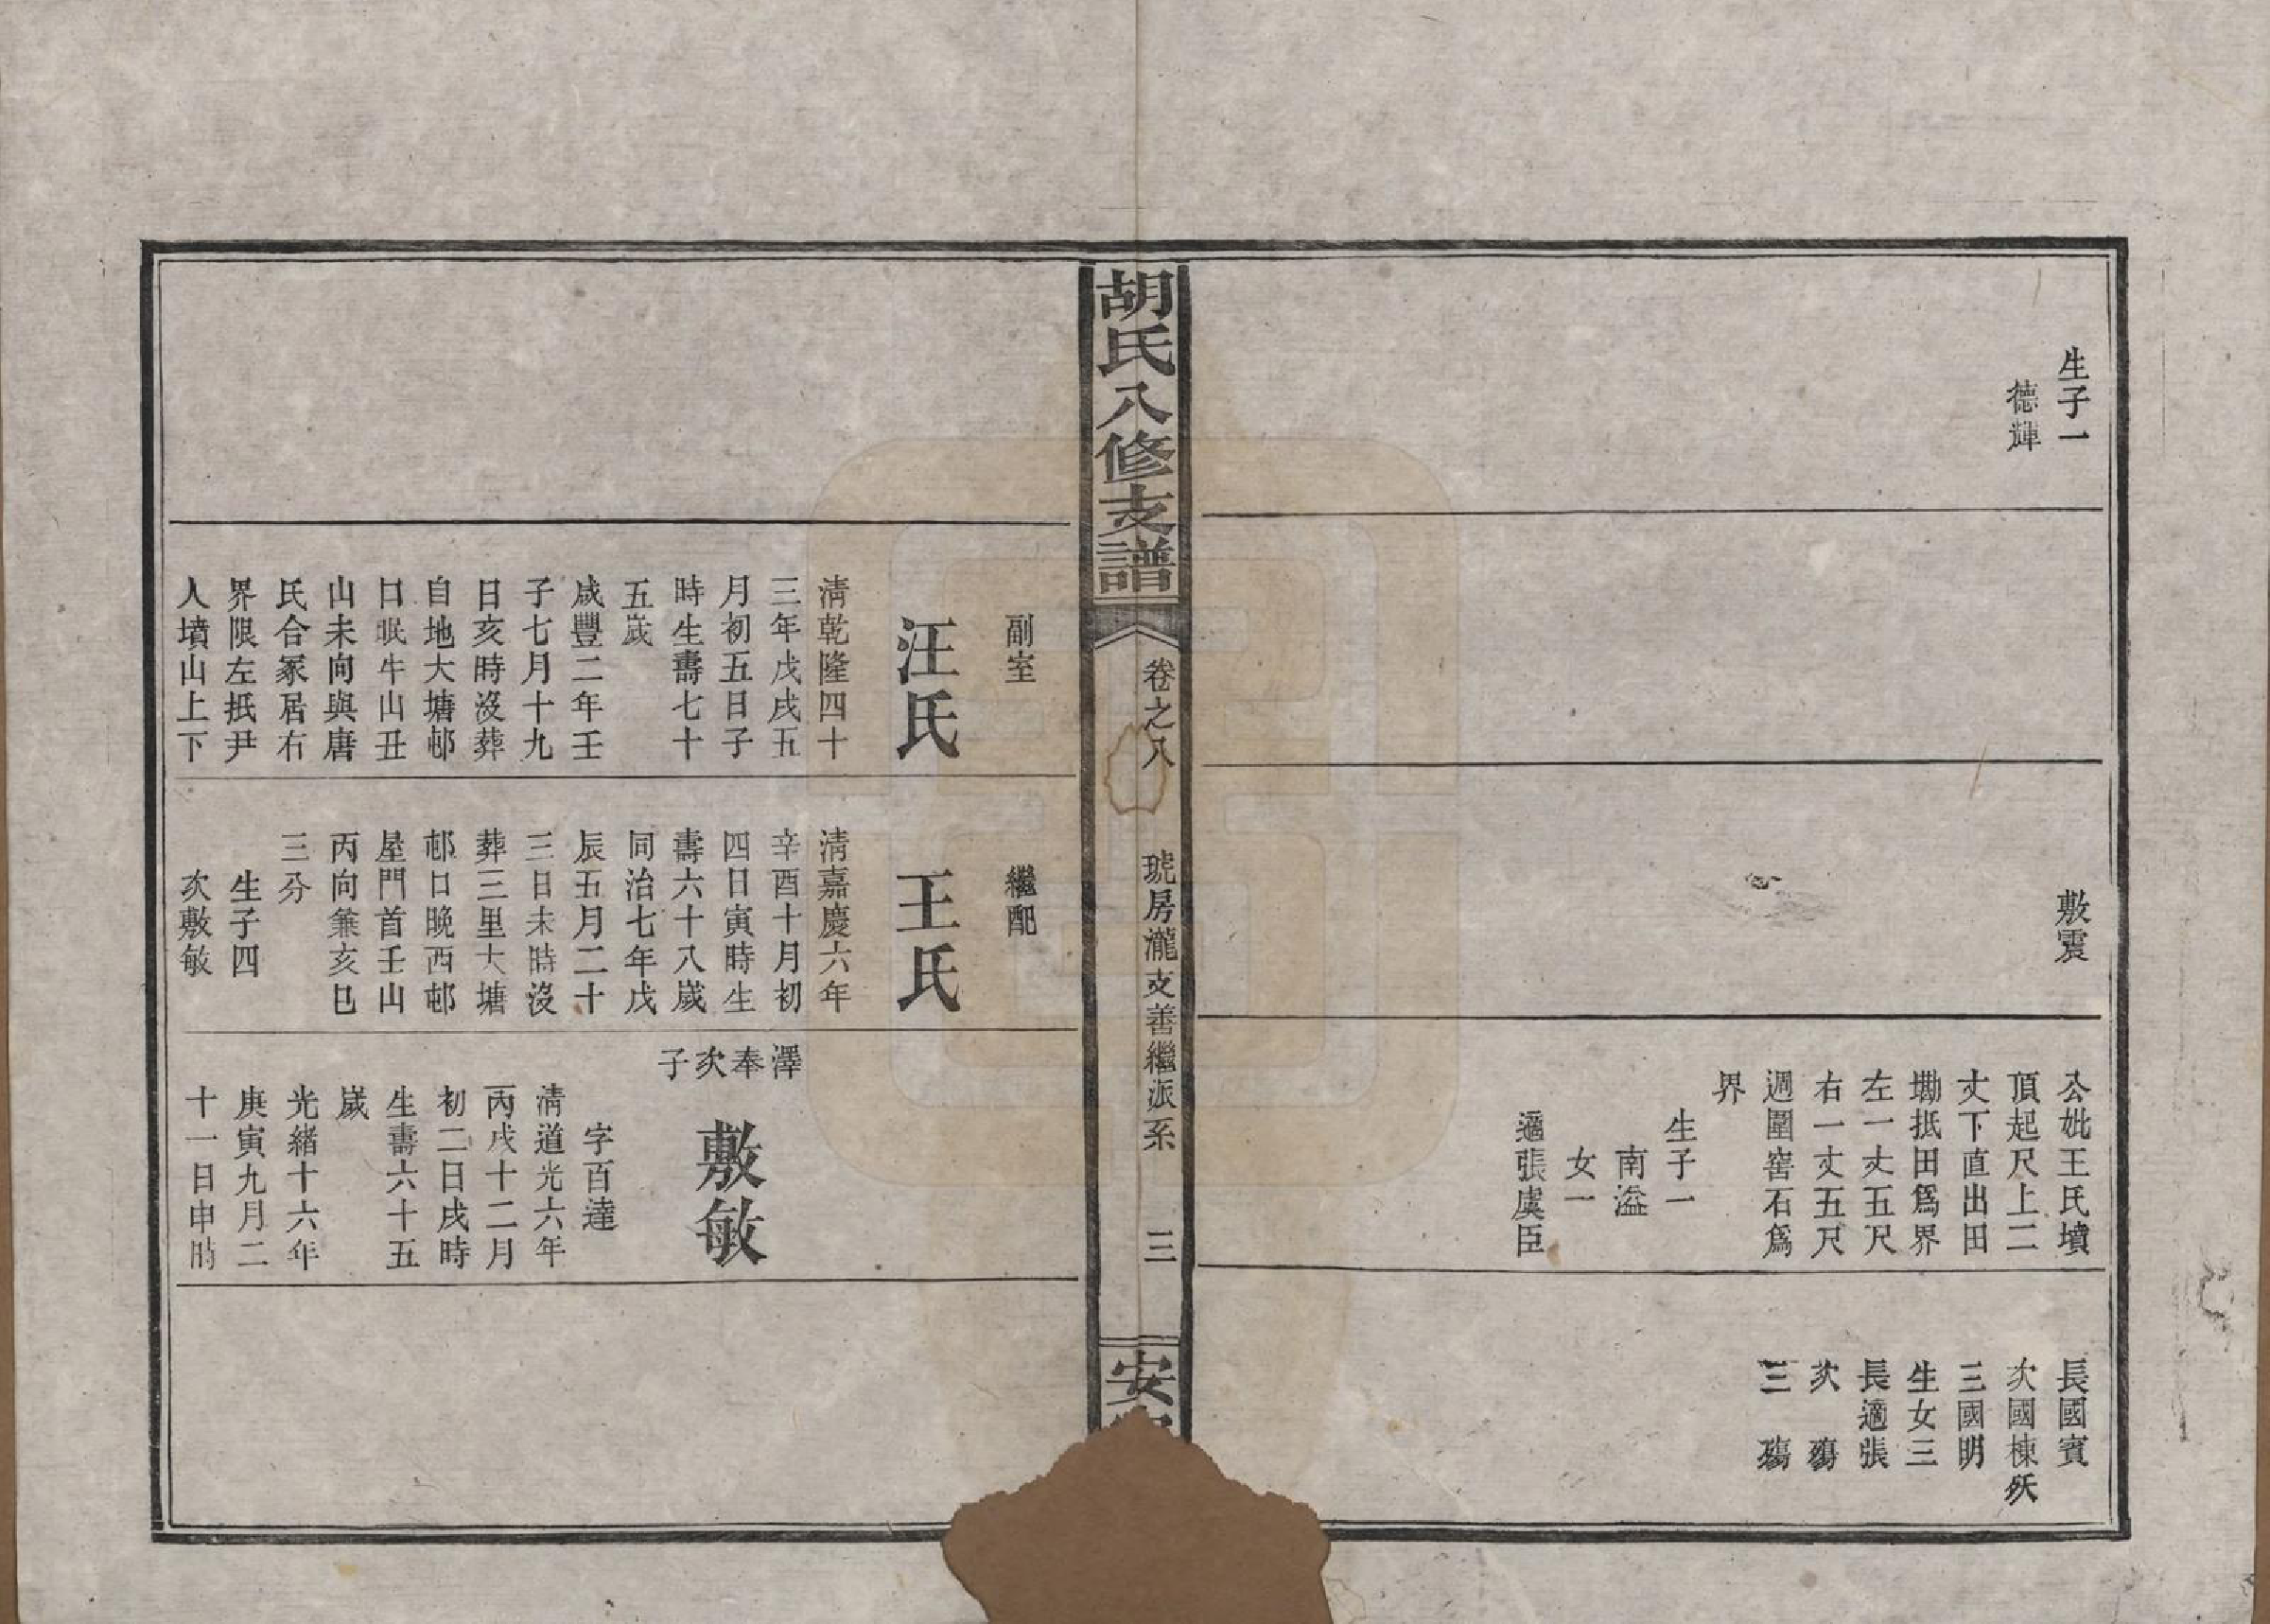 生子一
德輝
敷震
公妣王氏墳
頂起尺上二
丈下直出田
墈抵田爲界
左一丈五尺
右一丈五尺
週圍窖石爲
界
生子一
南溢
女一
適張虞臣
長國賓
次國棟殀
三國明
生女三
長適張
次　殤
三　殤
胡氏八修支譜
卷之八
琥房瀧支善繼派系
三
安
副室
汪氏
清乾隆四十
三年戊戌五
月初五日子
時生壽七十
五歲
咸豐二年壬
子七月十九
日亥時沒葬
自地大塘邨
口眠牛山丑
山未向與唐
氏合冢居右
界限左抵尹
人墳山上下
繼配
王氏
清嘉慶六年
辛酉十月初
四日寅時生
壽六十八歲
同治七年戊
辰五月二十
三日未時沒
葬三里大塘
邨口晚西邨
屋門首壬山
丙向兼亥巳
三分
生子四
次敷敏
澤奉次子
敷敏
字百達
清道光六年
丙戌十二月
初二日戌時
生壽六十五
歲
光緒十六年
庚寅九月二
十一日申時